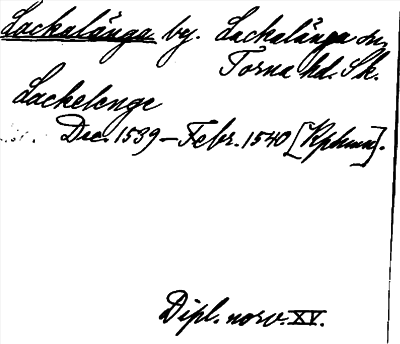 Lackalänga by. Lackalänga sn,
Torna hd. Sk.
Lackelenge
Dec. 1539 – Febr. 1540 [Kphmn].
Dipl. norv. XV.